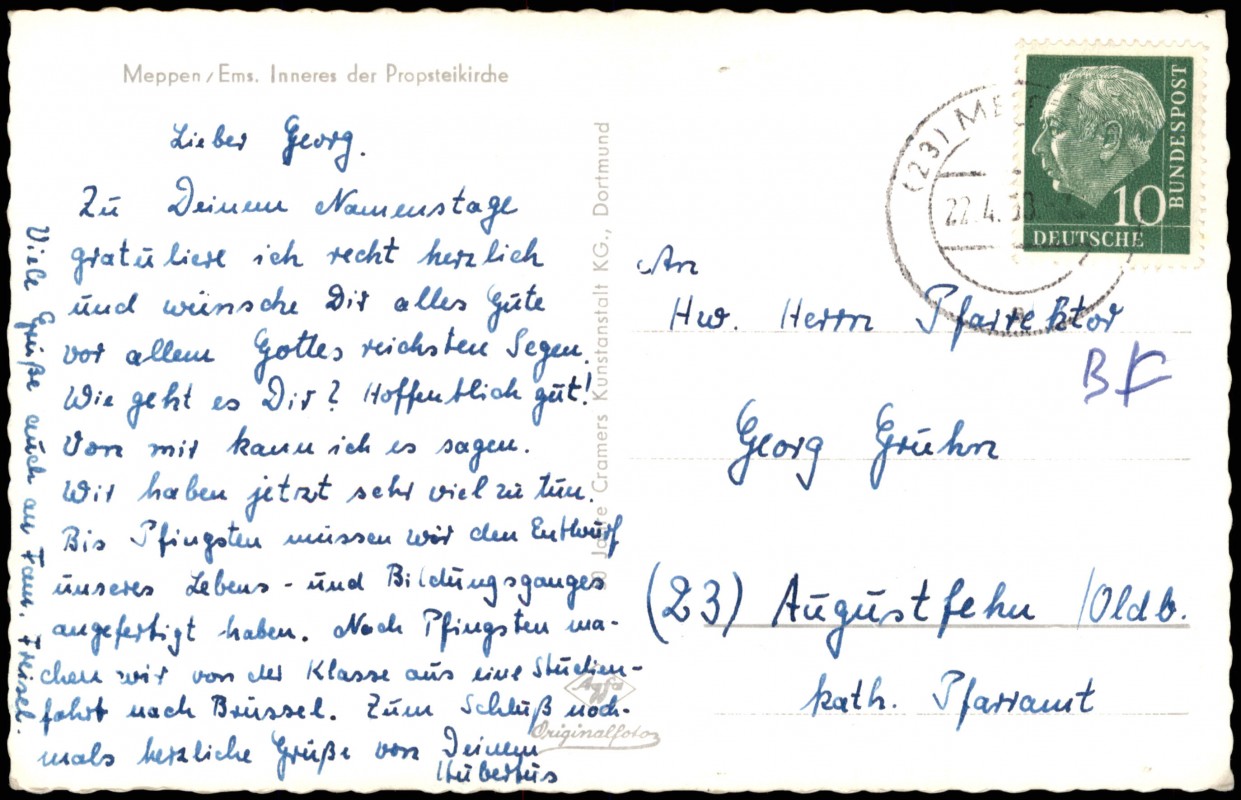 Meppen/Ems. Inneres der Propsteikirche
Lieber Georg.
Zu Deinem Namenstage
gratuliere ich recht herzlich
und wünsche Dir alles Gute
vor allem Gottes reichsten Segen.
Wie geht es Dir? Hoffentlich gut!
Von mir kann ich es sagen.
Wir haben jetzt sehr viel zu tun.
Bis Pfingsten müssen wir den Entwurf
unseres Lebens- und Bildungsganges
angefertigt haben. Nach Pfingsten ma-
chen wir von der Klasse aus eine Studien-
fahrt nach Brüssel. Zum Schluß noch-
mals herzliche Grüße von Deinem
Hubertus
Viele Grüße auch an Fam. Freisel.
Jahre Cramers Kunstanstalt KG., Dortmund
Agfa
Originalfoto
(23) ME
22.4.58
10
DEUTSCHE
BUNDESPOST
An
Hw. Herrn Pfarrektor
Georg Gruhn
(23) Augustfehn /Oldb.
kath. Pfarramt